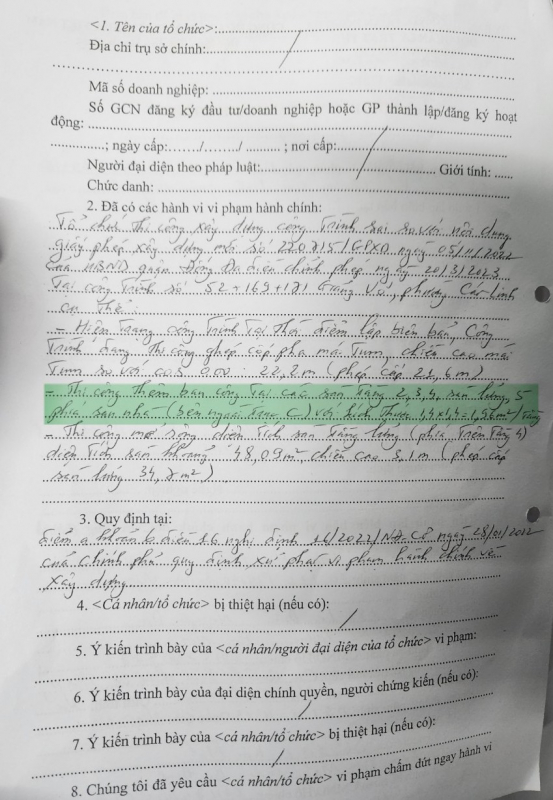 <1. Tên của tổ chức>:
Địa chỉ trụ sở chính:
Mã số doanh nghiệp:
Số GCN đăng ký đầu tư/doanh nghiệp hoặc GP thành lập/đăng ký hoạt
động:
; ngày cấp:....../....../ ......... ; nơi cấp:
Người đại diện theo pháp luật: Giới tính: .....
Chức danh:
2. Đã có các hành vi vi phạm hành chính:
Tổ chức thi công xây dựng công trình sai so với nội dung
giấy phép xây dựng mới số 220815/GPXD ngày 05/11/2022
của UBND quận Đống Đa điều chỉnh phép ngày 20/3/2023
Tại công trình số 52+169+171 Giảng Võ, phường Cát Linh
cụ thể:
- Hiện trạng công trình tại thời điểm lập biên bản, Công
Trình đang thi công ghép cốp pha mái Tum, chiều cao mái
Tum so với cos 0.00: 22,2m (phép cấp 21,6m)
- Thi công thêm ban công tại các sàn tầng 2,3,4, sàn lửng, 5
phía sau nhà (bên ngoài trục C) với kích thước 1,4x1,4=1,96m²/tầng
- Thi công mở rộng diện tích sàn tầng lửng (phía trên tầng 4)
diện tích sàn khoảng 48,09m², chiều cao 3,1m (phép cấp
sàn lửng 34,8m²)
3. Quy định tại:
điểm a khoản 6 điều 16 nghị định 16/2022/NĐ.CP ngày 28/01/2022
của Chính phủ quy định xử phạt vi phạm hành chính về
xây dựng
4. <Cá nhân/tổ chức> bị thiệt hại (nếu có):
5. Ý kiến trình bày của <cá nhân/người đại diện của tổ chức> vi phạm:
6. Ý kiến trình bày của đại diện chính quyền, người chứng kiến (nếu có):
7. Ý kiến trình bày của <cá nhân/tổ chức> bị thiệt hại (nếu có):
8. Chúng tôi đã yêu cầu <cá nhân/tổ chức> vi phạm chấm dứt ngay hành vi